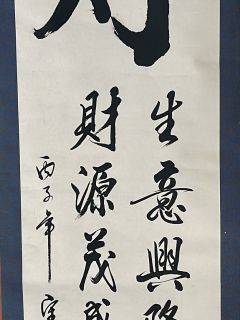 生意興隆
財源茂盛
丙子年